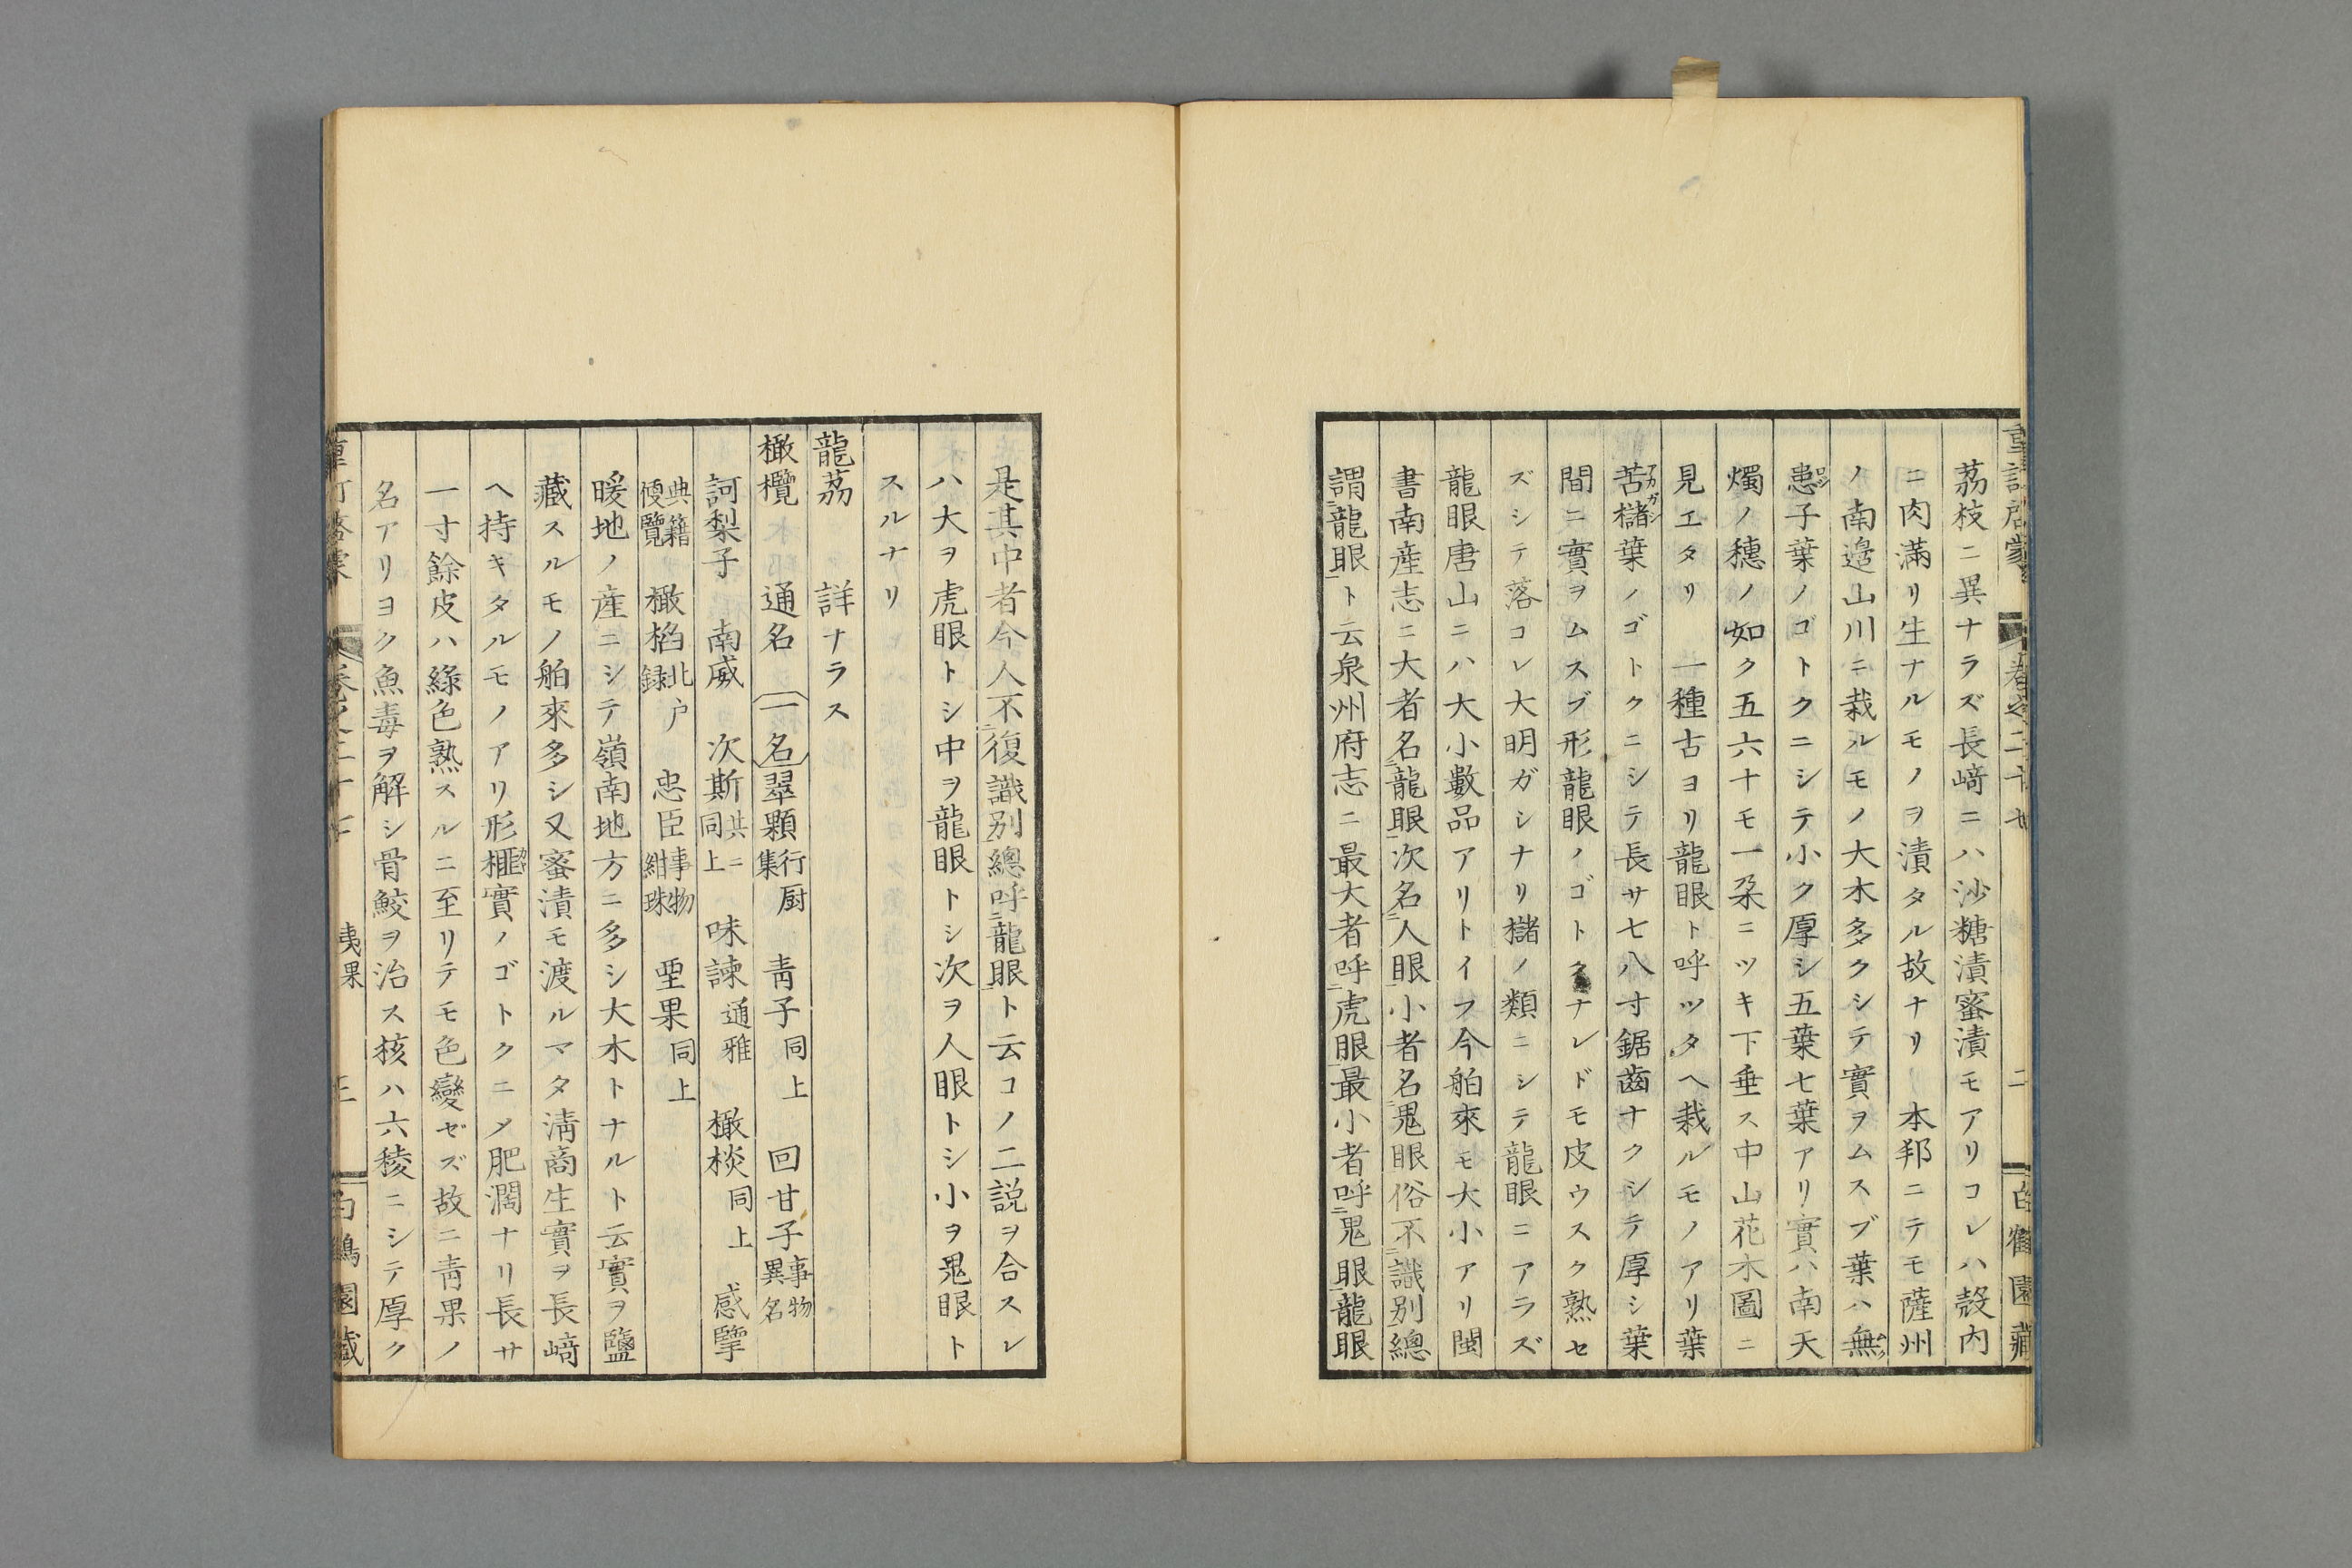 重訂啓蒙 卷之二十七 二 白鶴園藏
荔枝ニ異ナラズ長﨑ニハ沙糖漬蜜漬モアリコレハ殼内
ニ肉滿リ生ナルモノヲ漬タル故ナリ 本邦ニテモ薩州
ノ南邉山川ニ栽ルモノ大木多クシテ實ヲムスブ葉ハ無
患子葉ノゴトクニシテ小ク厚シ五葉七葉アリ實ハ南天
燭ノ穗ノ如ク五六十モ一朶ニツキ下垂ス中山花木圖ニ
見エタリ 一種古ヨリ龍眼ト呼ツタヘ栽ルモノアリ葉
苦櫧葉ノゴトクニシテ長サ七八寸鋸齒ナクシテ厚シ葉
間ニ實ヲムスブ形龍眼ノゴトクナレドモ皮ウスク熟セ
ズシテ落コレ大明ガシナリ櫧ノ類ニシテ龍眼ニアラズ
龍眼唐山ニハ大小數品アリトイフ今舶來モ大小アリ閩
書南産志ニ大者名龍眼次名人眼小者名鬼眼俗不識別總
謂龍眼ト云泉州府志ニ最大者呼虎眼最小者呼鬼眼龍眼
是其中者今人不復識別總呼龍眼ト云コノ二説ヲ合スレ
ハ大ヲ虎眼トシ中ヲ龍眼トシ次ヲ人眼トシ小ヲ鬼眼ト
スルナリ
龍荔 詳ナラス
橄欖 通名 一名翠顆行厨集 青子同上 回甘子事物異名
訶梨子 南威 次斯共ニ同上 味諫通雅 橄棪同上 感擥
典籍便覽 橄榙北戸録 忠臣事物紺珠 堊果同上
暖地ノ産ニシテ嶺南地方ニ多シ大木トナルト云實ヲ鹽
藏スルモノ舶來多シ又蜜漬モ渡ルマタ淸商生實ヲ長﨑
ヘ持キタルモノアリ形榧實ノゴトクニメ肥濶ナリ長サ
一寸餘皮ハ綠色熟スルニ至リテモ色變ゼズ故ニ青果ノ
名アリヨク魚毒ヲ解シ骨鯁ヲ治ス核ハ六稜ニシテ厚ク
重訂啓蒙 卷之二十七 夷果 三 白鶴園藏